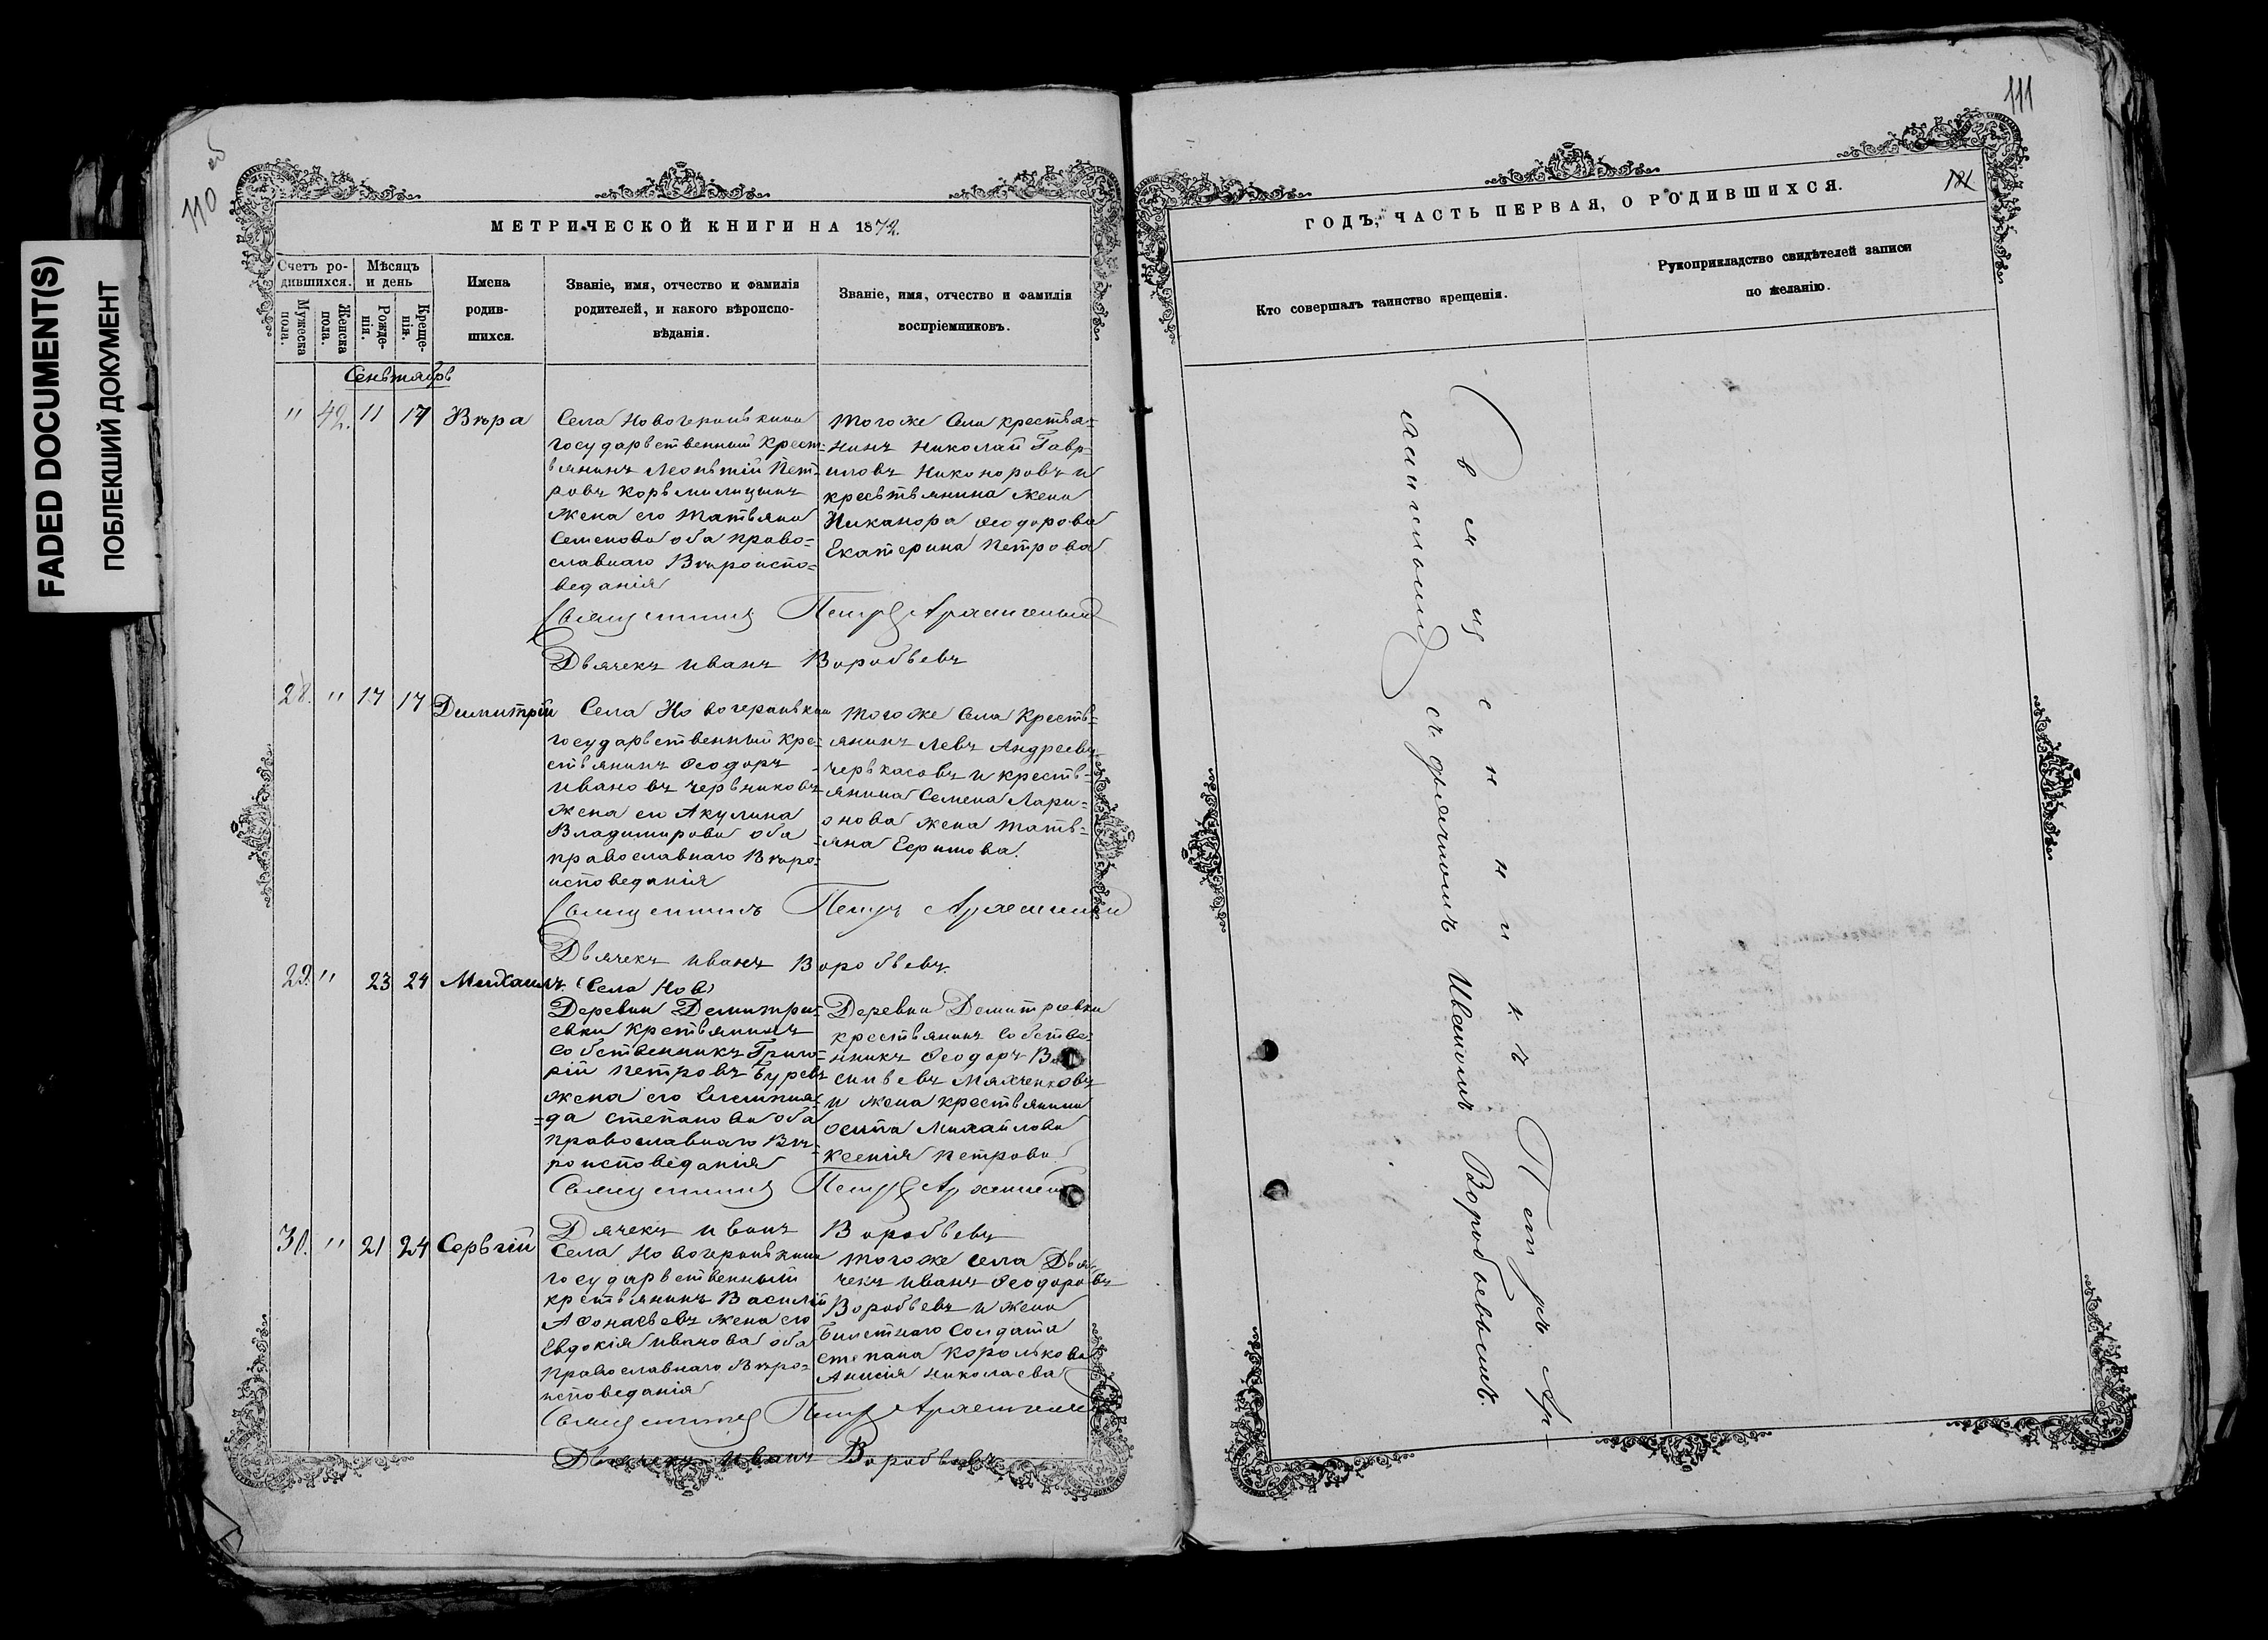 FADED DOCUMENT(S)
ПОБЛЕКШИЙ ДОКУМЕНТ
110 об
МЕТРИЧЕСКОЙ КНИГИ НА 1872.
Счетъ ро-
дившихся.
Мѣсяцъ
и день
Мужеска
пола.
Женска
пола.
Рожде-
нія.
Креще-
нія.
Имена
родив-
шихся.
Званіе, имя, отчество и фамилія
родителей, и какого вѣроиспо-
вѣданія.
Званіе, имя, отчество и фамилія
воспріемниковъ.
Сеньтябрь
" 42. 11 17 Вѣра
Села
государьственный Крест-
ьянинъ Леонътій Пет-
ровъ Корьмилицынъ
жена его Татьяна
Семенова оба право-
славнаго Вѣроиспо-
веданія
тогоже Села крестья-
нинъ Николай Гавр-
иловъ Никоноровъ и
крестьянина жена
Никанора Ѳеодорова
Екатерина Петрова
Священникъ Петръ
Дьячекъ Иванъ Воробьевъ
28. " 17 17 Димитрій
Села
государьственный Кре-
стьянинъ Ѳеодоръ
Ивановъ Червяковъ
жена его Акулина
Владимирова оба
православнаго Вѣро-
исповеданія
тогоже Села Кресть-
янинъ Левъ Андреевъ
Черькасовъ и кресть-
янина Семена Лари-
онова жена Тать-
яна Ефимова.
Священникъ Петръ
Дьячекъ Иванъ Воробьевъ.
29. " 23 24 Михаилъ.
(Села Нов)
Деревни Демитри-
евки Крестьянинъ
собственникъ Григо-
рій Петровъ Буревъ
жена его
да Степанова оба
православнаго Вѣ-
роисповеданія
Деревни Демитревки
крестьянинъ Собствен-
никъ Ѳеодоръ Ва
сильевъ Мяхченковъ
и жена крестьянина
Осипа Михайлова
Ксенія Петрова
Священникъ Петръ
Дячекъ Иванъ Воробьевъ
30. " 21 24 Серьгій
Села
государьственный
крестьянинъ Василій
Афонасьевъ жена его
Евдокія Иванова оба
православнаго Вѣро-
исповеданія
тогоже села Дья
чекъ Иванъ Ѳеодоровъ
Воробьевъ и жена
Билетнаго Солдата
Степана Королькова
Анисія Николаева
Священникъ Петръ
Дьячекъ Иванъ Воробьевъ
111
ГОДЪ, ЧАСТЬ ПЕРВАЯ, О РОДИВШИХСЯ.
Кто совершалъ таинство крещенія.
Рукоприкладство свидѣтелей записи
по желанію.
Священникъ Петръ Ар-
съ дьячкомъ Иваномъ Воробьевымъ.